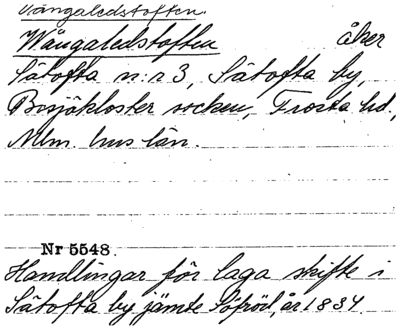 Vångaledstoften
Wångaledstoften åker
Sätofta n:r 3, Sätofta by,
Bosjökloster socken, Frosta hd.,
Mlm. hus län.
Nr 5548.
Handlingar för laga skifte i
Sätofta by jämte Söfröd, år 1834.